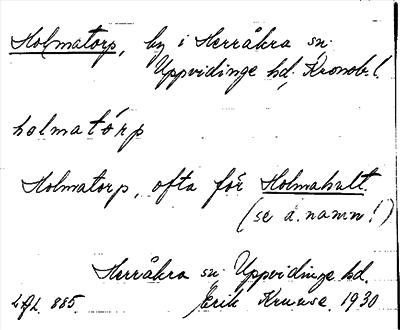 Holmatorp, by i Herråkra sn.
Uppvidinge hd, Kronob. l.
holmatórp
Holmatorp, ofta för Holmahult.
(se d. namn!)
Herråkra sn. Uppvidinge hd.
LAL. 885. Erik Kruuse. 1930